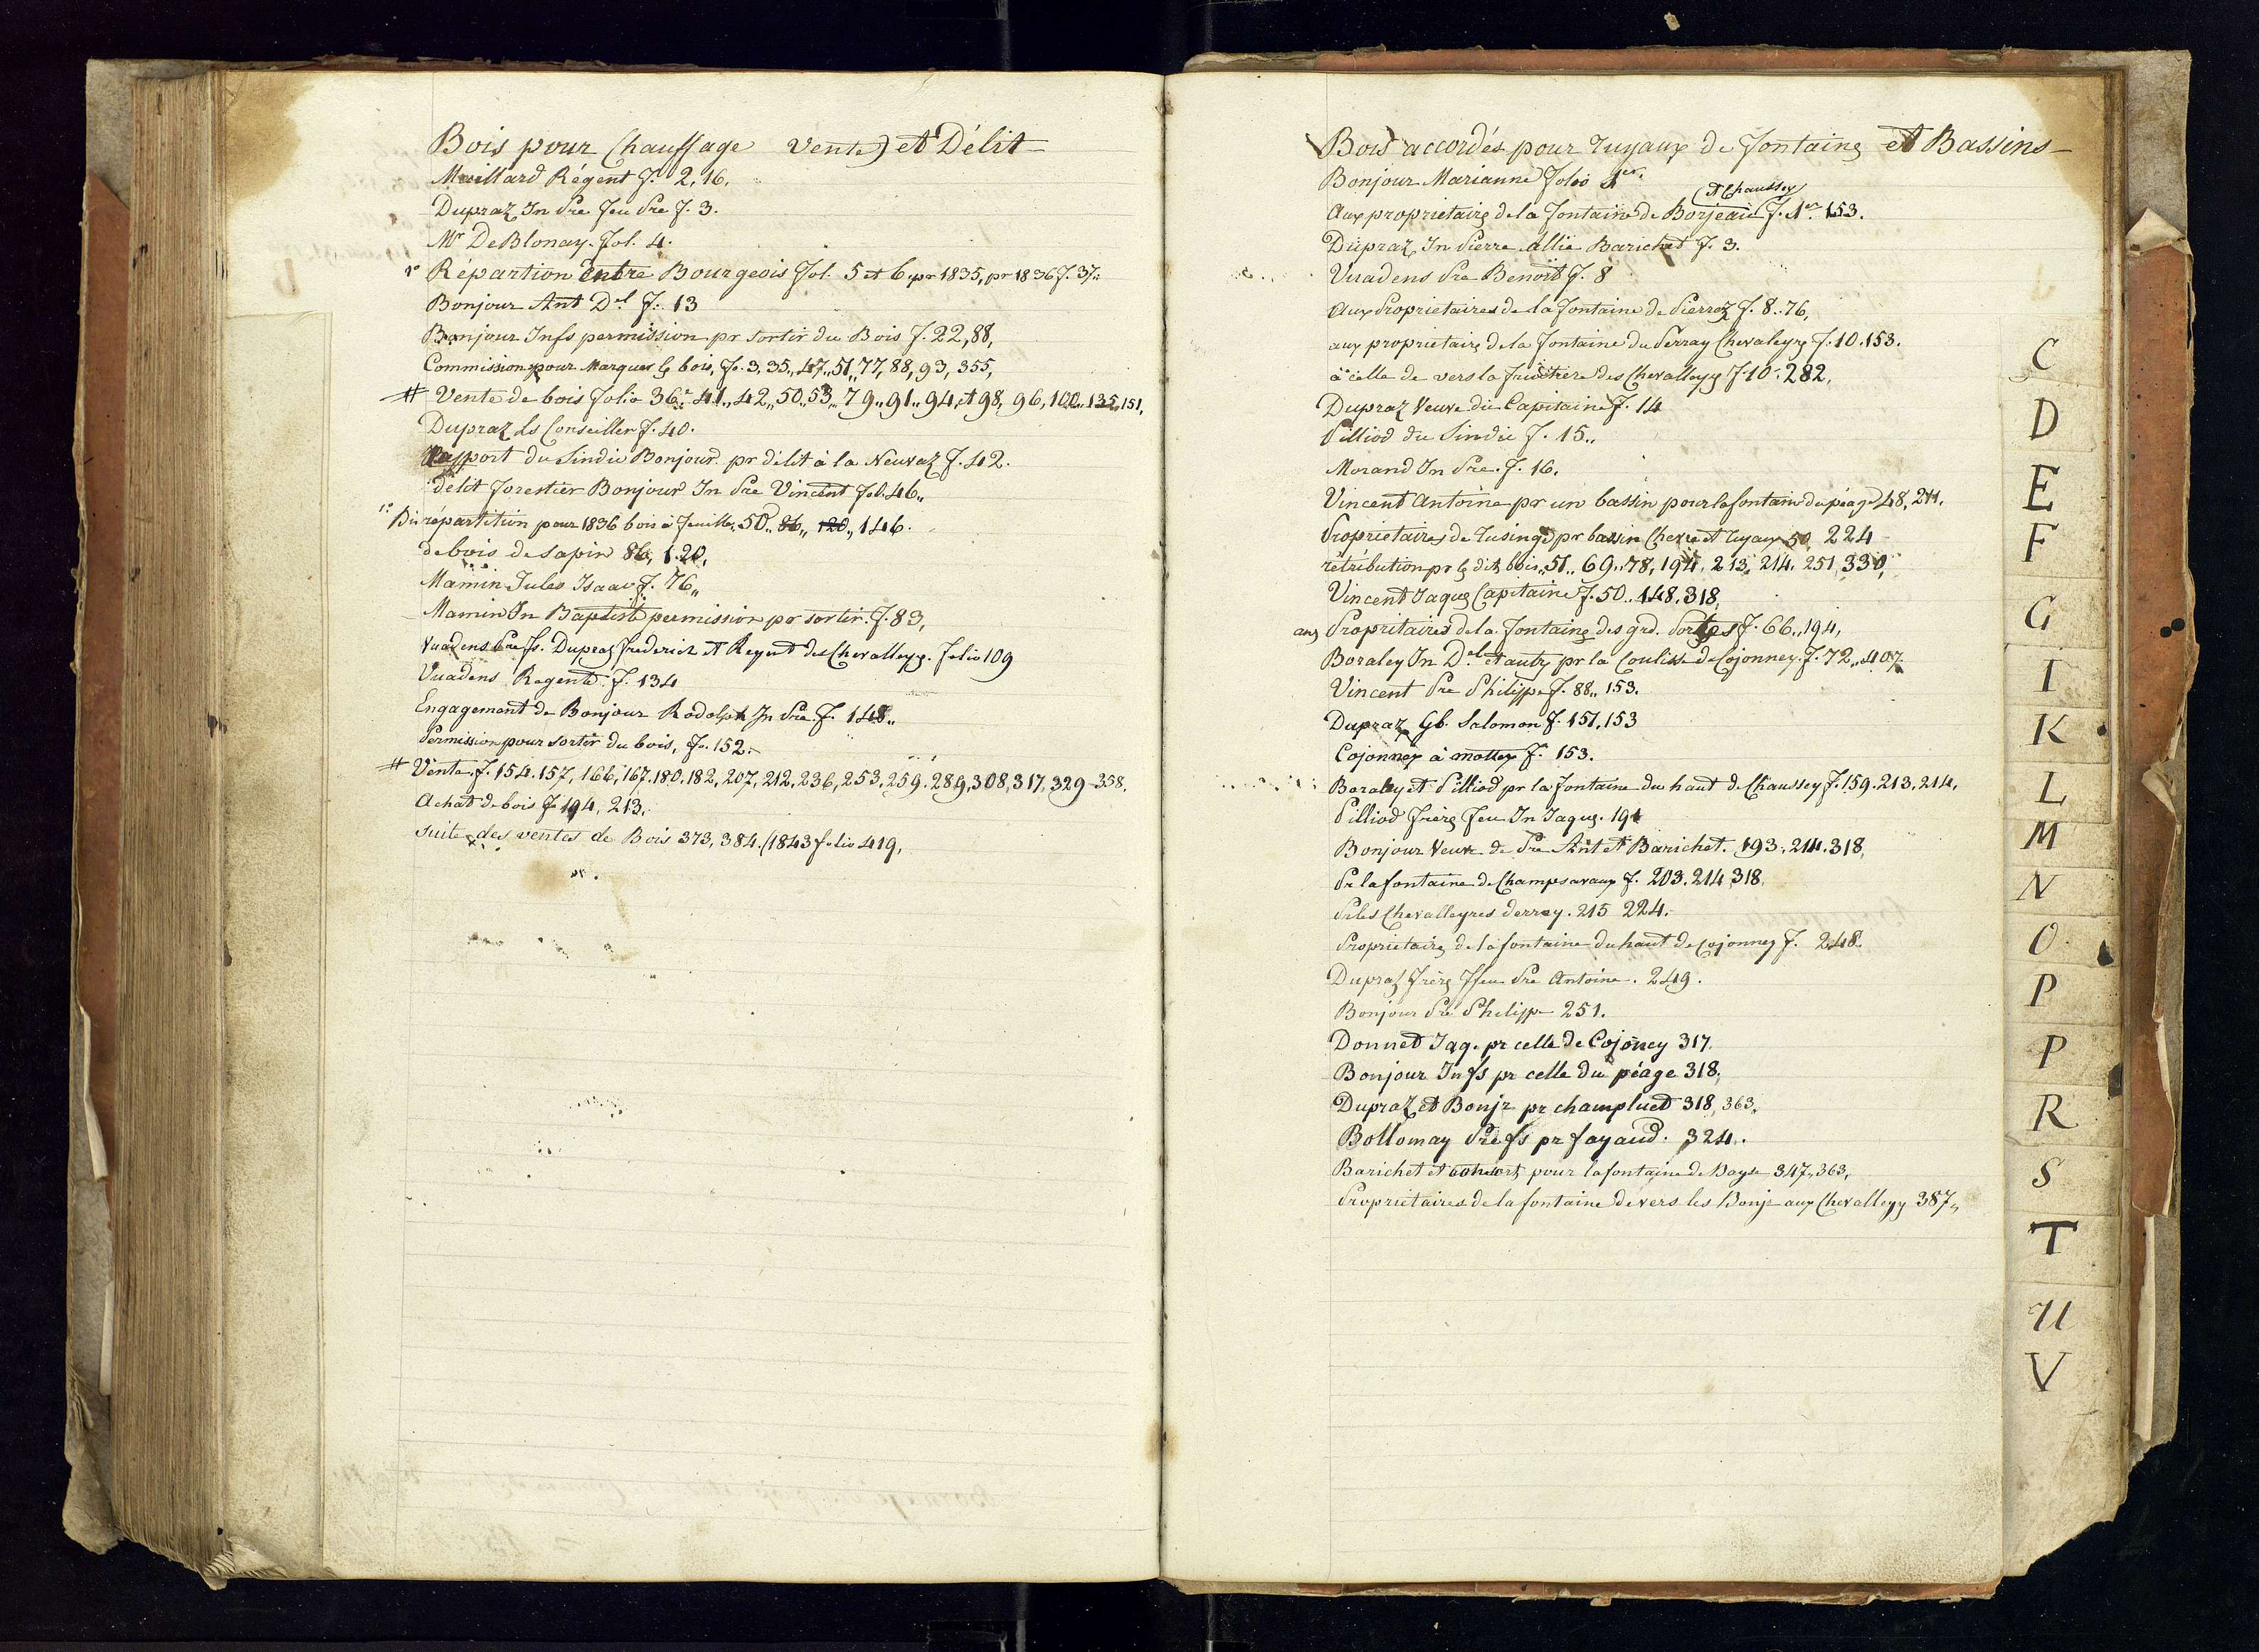 Bois pour Chauffage Vente) et Délit
Maillard Régent f. 2, 16.
Dupraz Jn Pre feu Pre f. 3.
Mr DeBlonay. fol. 4.
1° Répartion Entre Bourgeois fol. 5 et 6 pr 1835, pr 1836 f. 37.
Bonjour Ant Del f. 13
Bonjour Jnfs permission pr sortir du Bois f. 22, 88,
Commission pour Marquer le bois, fo. 3, 35,, 47,, 51,, 77, 88, 93, 355,
# Vente de bois folio 36,, 41,, 42,, 50,, 53,, 79,, 91,, 94, et 98, 96, 100,, 135, 151,
Dupraz Ls Conseiller f. 40.
Rapport du Sindic Bonjour pr délit à la Neuvaz f. 42.
délit forestier Bonjour Jn Pre Vincent fol. 46,,
1° Dit répartition pour 1836 bois à feuille, 50,, 86,, 120,, 146.
de bois de sapin 86, 120,
Mamin Jules Isaac f. 76,,
Mamin Jn Baptiste permission pr sortir f. 83,
Vuadens Pre fs. Dupraz frederich et Regent des Chevalleyres. folio 109
Vuadens Regente f. 134
Engagement de Bonjour Rodolph Jn Pre f. 148,,
Permission pour sortir du bois, fo. 152.
# Vente f. 154. 157, 166, 167. 180. 182, 207, 212, 236, 253, 259, 289, 308, 317, 329 358.
Achat de bois f. 194, 213.
Suite des ventes de Bois 373, 384. (1843 folio 419,
Bois accordés pour tuyaux de fontaines et Bassins
Bonjour Marianne folio 1er.
et Chaussey
Aux proprietaires de la fontaine de Borjeau f. 1er 153.
Dupraz Jn Pierre allié Barichet f. 3.
Vuadens Pre Benoit f. 8
Aux Proprietaires de la fontaine de Pierroz f. 8. 76,
aux proprietaires de la fontaine du Perray Chevaleyres f. 10. 153.
à celle de vers la fruitiere des Chevalleyres f 10. 282,
Dupraz Veuve du Capitaine f. 14
Pilliod du Sindic f. 15,,
Morand Jn Pre. f. 16.
Vincent Antoine pr un bassin pour la fontaine du péage 48, 211.
Proprietaires de Tusinge pr bassin Chevre et tuyaux 50, 224
rétribution pr les dits bois,, 51,, 69,, 78, 194, 213, 214, 251, 330,
Vincent Jaques Capitaine f. 50,, 148, 318,
aux Propritaires de la fontaine des grd. Portes f. 66,, 194,
Boraley Jn Del et autres pr la Coulisse de Cojonnex f. 72,, 407
Vincent Pre Philippe f. 88,, 153.
Dupraz Gb. Salomon f. 151, 153
Cojonnex à mottex f. 153.
Boraley et Pilliod pr la fontaine du haut de Chaussey f. 159. 213, 214,
Pilliod frères feu Jn Jaques. 191
Bonjour Veuve de Pre Ant et Barichet. 193, 214. 318,
Pr la fontaine de Champsavaux f. 203. 214 318.
Pr les Chevalleyres derrey. 215 224.
Proprietaires de la fontaine du haut de Cojonnex f. 248.
Dupraz frères ffeu Pre Antoine. 249.
Bonjour Pre Philippe 251.
Donnet Jaq. pr celle de Cojoney 317.
Bonjour Jnfs pr celle du péage 318,
Dupraz et Bonjr pr champluet 318, 363,
Bottomay Pre fs pr fayaud. 324.
Barichet et cohoirs pour la fontaine de Baye 347, 363,
Proprietaires de la fontaine devers les Bonjr aux Chevalleyres 387,,
C
D
E
F
G
I
K
L
M
N
O
P
P
R
S
T
U
V